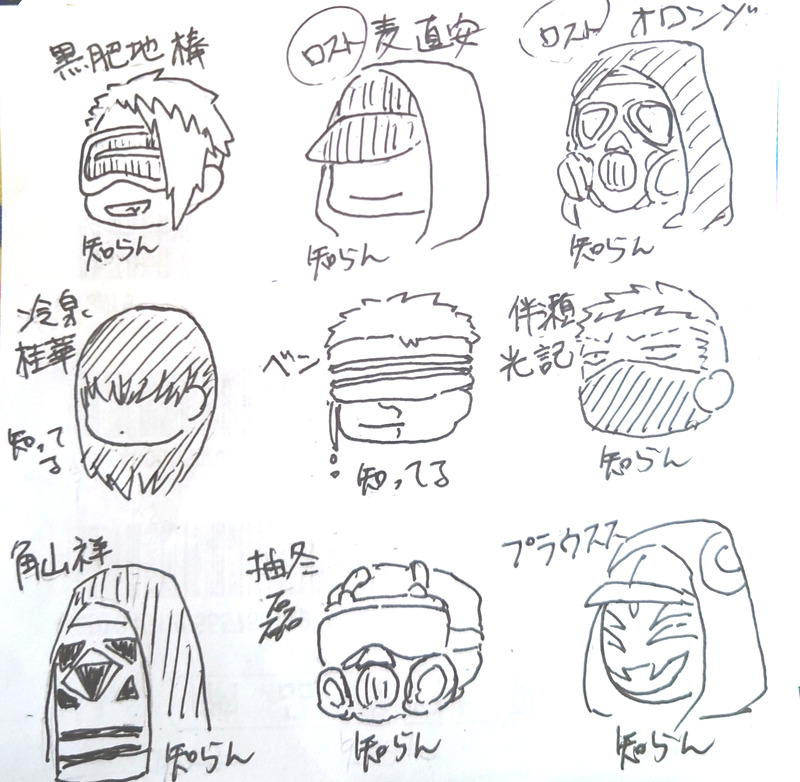 黒肥地棒
知らん
ロスト 麦直安
知らん
ロスト オロンゾ
知らん
冷泉
桂華
知って
る
ベン
知ってる
伴瀬
光記
知らん
角山祥
知らん
抽冬
磊
知らん
プラウスス
知らん